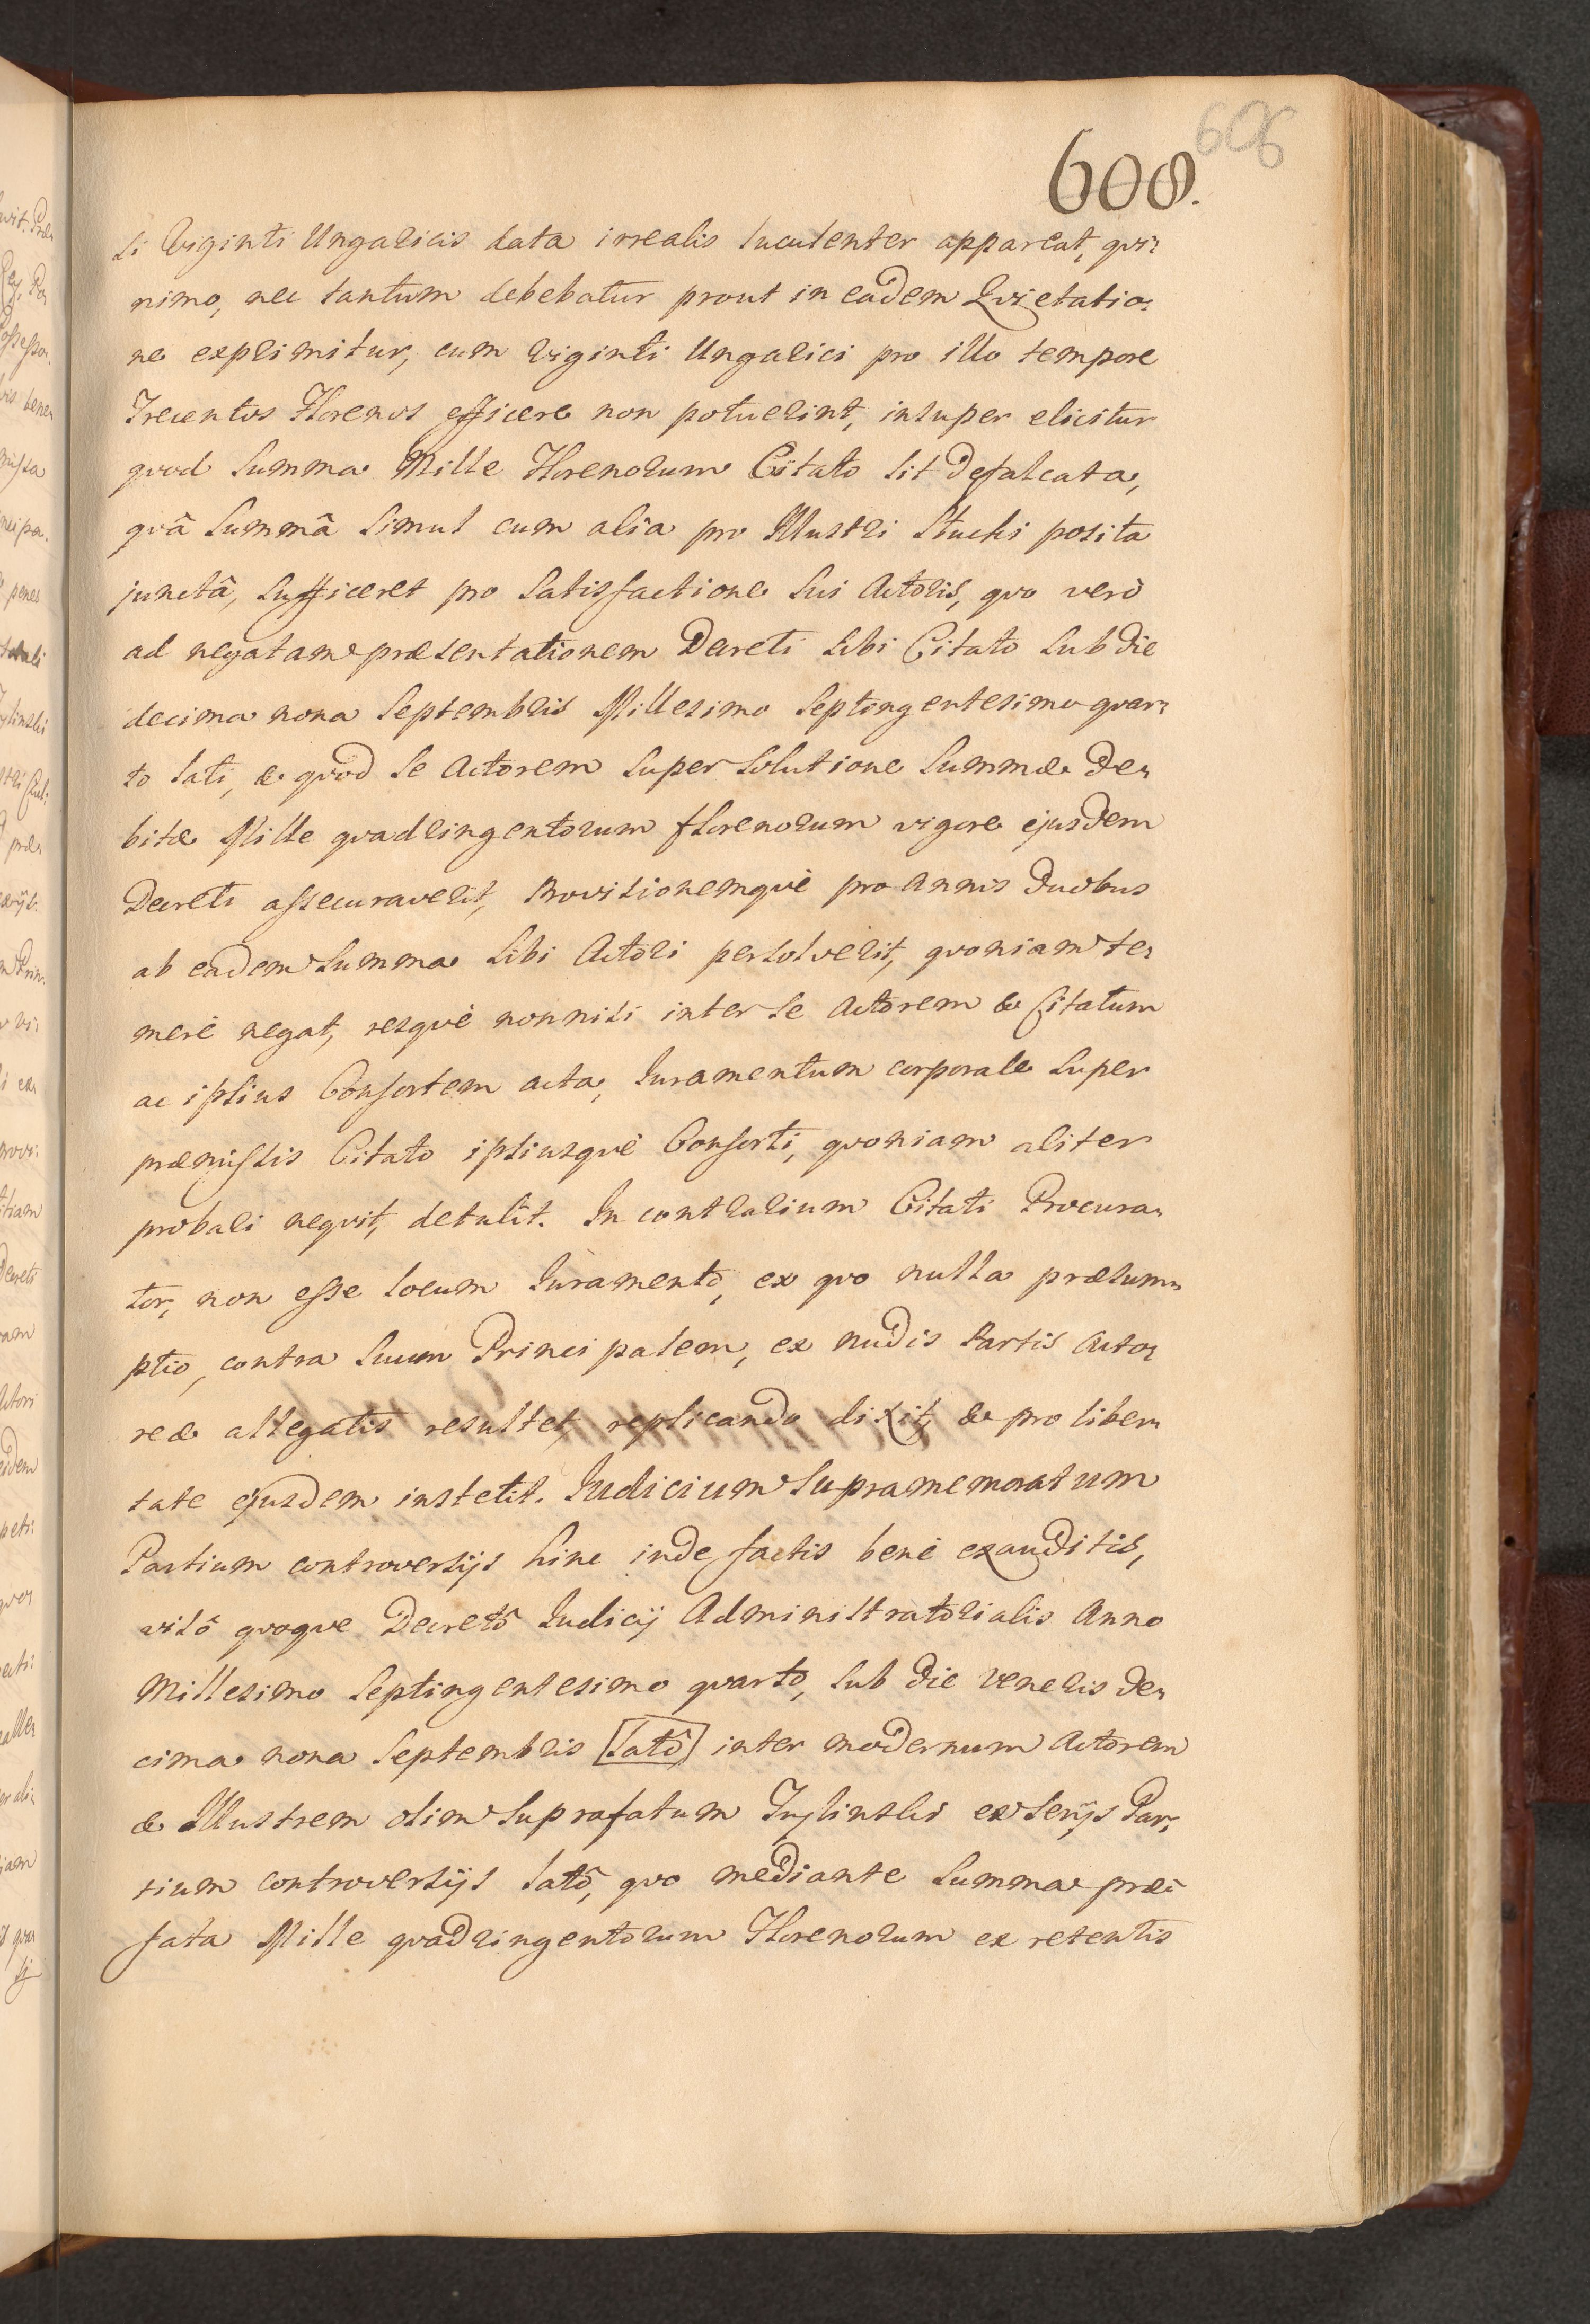 606
608.
si Viginti Ungaricis data irrealis luculenter appareat, qvi-
nimo, nec tantum debebatur prout in eadem Qvietatio-
ne exprimitur, cum Viginti Ungarici pro illo tempore
Trecentos Florenos efficere non potuerint, insuper elicitur
qvod Summa Mille Florenorum Citato sit defalcata,
qvâ Summâ simul cum alia pro Illustri Stucki posita
junctâ, sufficeret pro Satisfactione sui Actoris, qvo verò
ad negatam præsentationem Decreti sibi Citato sub die
decima nona Septembris Millesimo Septingentesimo qvar-
to lati, & qvod se Actorem super solutione Summæ de-
bitæ Mille qvadringentorum florenorum vigore ejusdem
Decreti assecuraverit, Provisionemqvè pro Annis duobus
ab eadem Summa sibi Actori persolverit, qvoniam te-
merè negat, resqvè nonnisi inter se Actorem & Citatum
ac ipsius Consortem acta, Iuramentum corporale super
præmissis Citato ipsiusqvè Consorti, qvoniam aliter
probari neqvit, detulit. In contrarium Citati Procura-
tor, non esse locum Iuramento, ex qvo nulla præsum-
ptio, contra suum Principalem, ex nudis Partis Acto-
reæ allegatis resultet, replicando dixit, & pro liber-
tate ejusdem institit. Iudicium Supramemoratum
Partium controversijs hinc inde factis benè exauditis,
visô qvoqve Decretô Iudicij Administratorialis Anno
Millesimo Septingentesimo qvarto, sub die Veneris de-
cima nona Septembris [latô] inter modernum Actorem
& Illustrem olim Suprafatum Trylinski ex serijs Par-
tium controversijs latô, qvo mediante Summa præ-
fata Mille qvadringentorum Florenorum ex retentis